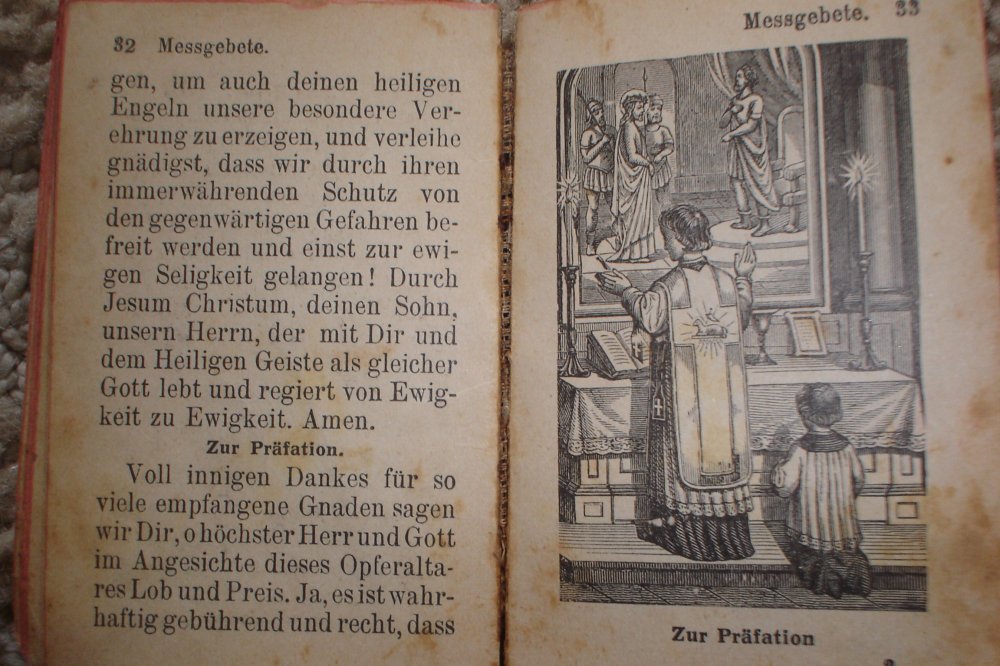 32 Messgebete.
gen, um auch deinen heiligen
Engeln unsere besondere Ver-
ehrung zu erzeigen, und verleihe
gnädigst, dass wir durch ihren
immerwährenden Schutz von
den gegenwärtigen Gefahren be-
freit werden und einst zur ewi-
gen Seligkeit gelangen! Durch
Jesum Christum, deinen Sohn,
unsern Herrn, der mit Dir und
dem Heiligen Geiste als gleicher
Gott lebt und regiert von Ewig-
keit zu Ewigkeit. Amen.
Zur Präfation.
Voll innigen Dankes für so
viele empfangene Gnaden sagen
wir Dir, o höchster Herr und Gott
im Angesichte dieses Opferalta-
res Lob und Preis. Ja, es ist wahr-
haftig gebührend und recht, dass
Messgebete. 33
Zur Präfation